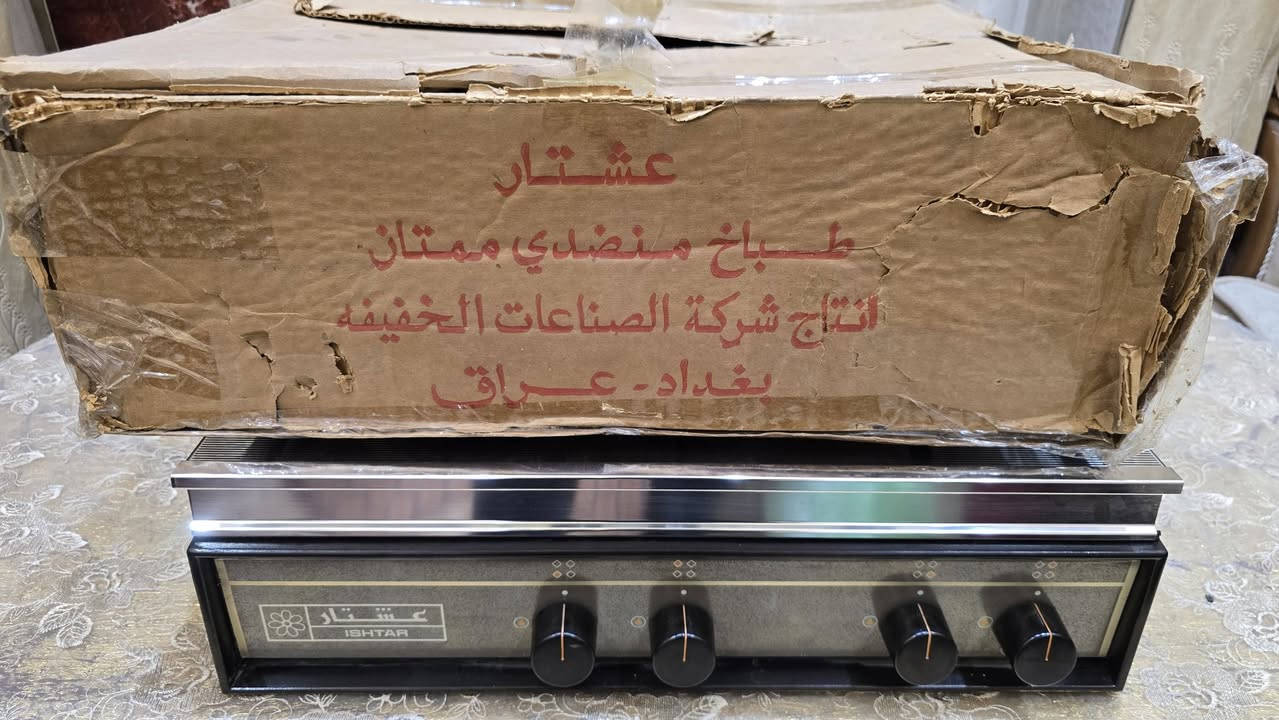 عشتار
طباخ منضدي ممتاز
انتاج شركة الصناعات الخفيفه
بغداد - عراق
عشتار
ISHTAR